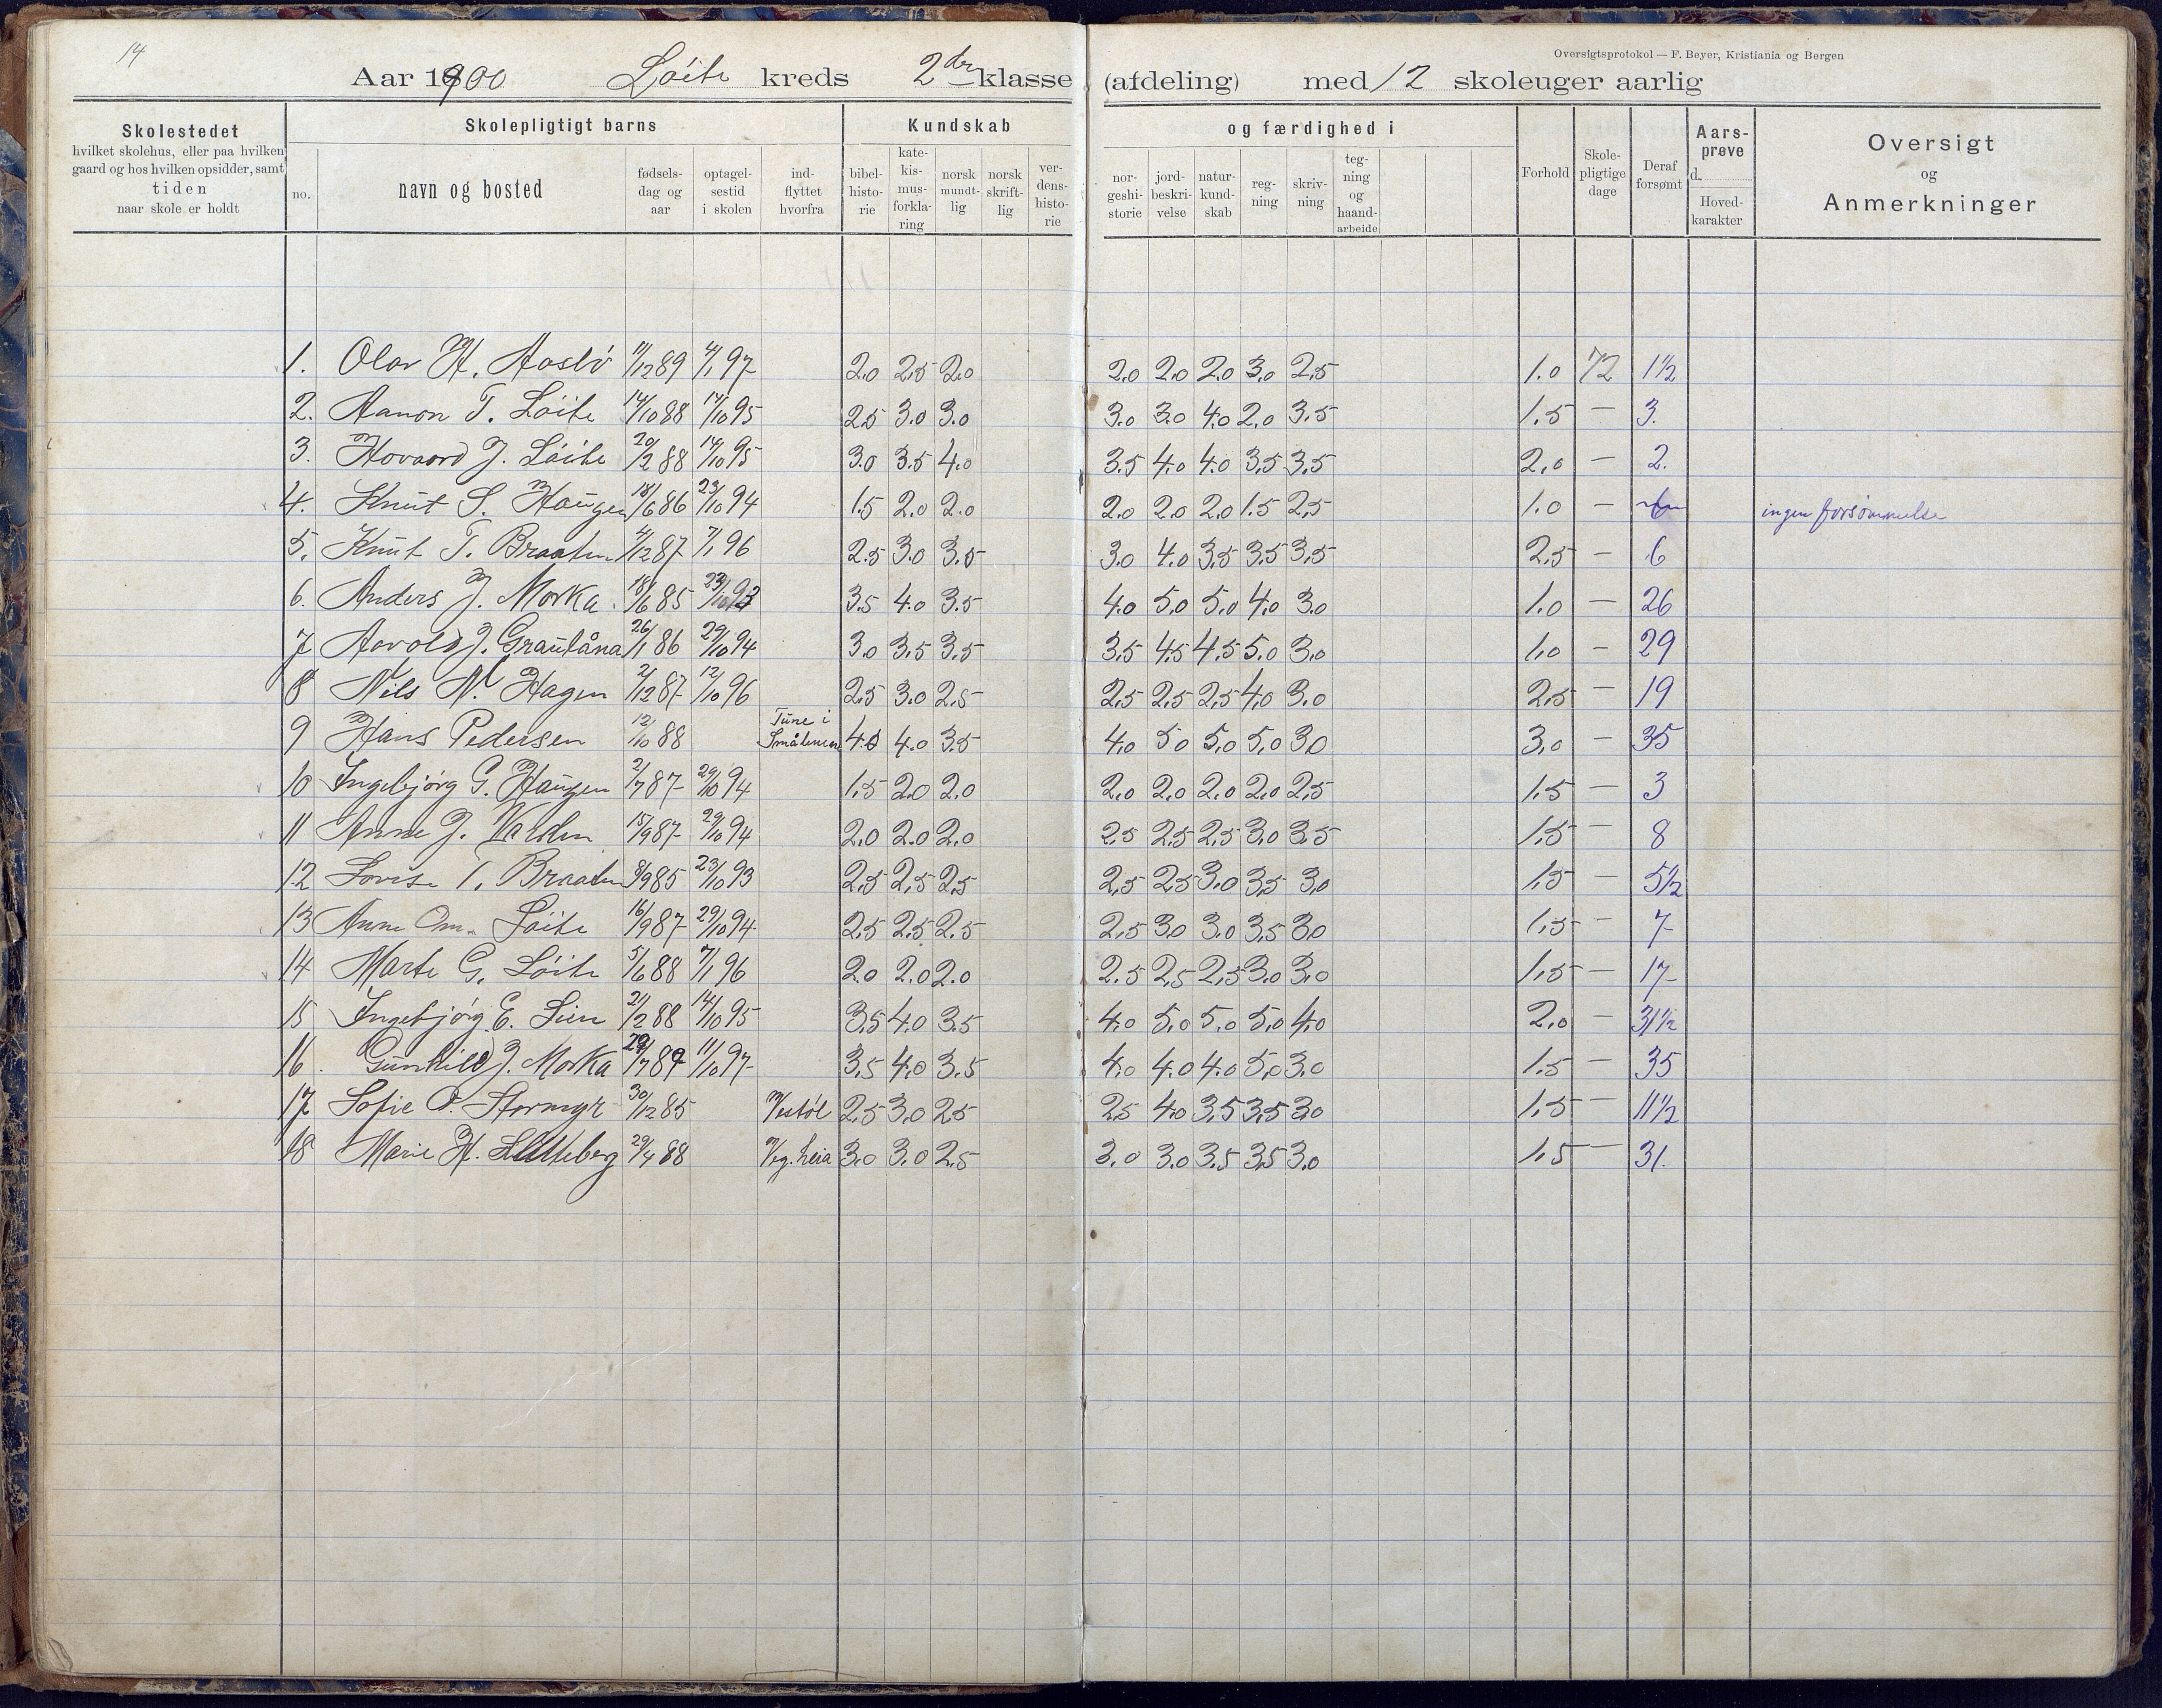 14
Oversigtsprotokol — F. Beyer, Kristiania og Bergen
Aar 1900 Løite kreds 2den klasse (afdeling) med 12 skoleuger aarlig
Skolestedet
hvilket skolehus, eller paa hvilken
gaard og hos hvilken opsidder, samt
tiden
naar skole er holdt
Skolepligtigt barns
no.
navn og bosted
fødsels-
dag og
aar
optagel-
sestid
i skolen
ind-
flyttet
hvorfra
Kundskab
bibel-
histo-
rie
kate-
kis-
mus-
forkla-
ring
norsk
mundt-
lig
norsk
skrift-
lig
ver-
dens-
histo-
rie
og færdighed i
nor-
geshi-
storie
jord-
beskri-
velse
natur-
kund-
skab
reg-
ning
skriv-
ning
teg-
ning
og
haand-
arbeide
Forhold
Skole-
pligtige
dage
Deraf
forsømt
Aars-
prøve
d.
Hoved-
karakter
Oversigt
og
Anmerkninger
1. Olav H. Aaslø 11/12 89 4/1 97 2.0 2.5 2.0 2.0 2.0 2.0 3.0 2.5 1.0 72 1½
2. Aanon T. Løite 14/10 88 14/10 95 2.5 3.0 3.0 3.0 3.0 4.0 2.0 3.5 1.5 — 3.
3. Hovaard J. Løite 20/2 88 14/10 95 3.0 3.5 4.0 3.5 4.0 4.0 3.5 3.5 2.0 — 2.
4. Knut S. Haugen 18/6 86 23/10 94 1.5 2.0 2.0 2.0 2.0 2.0 1.5 2.5 1.0 — ingen forsømmelse
5. Knut T. Braaten 4/12 87 7/1 96 2.5 3.0 3.5 3.0 4.0 3.5 3.5 3.5 2.5 — 6
6. Anders J. Morka 18/6 85 23/10 93 3.5 4.0 3.5 4.0 5.0 5.0 4.0 3.0 1.0 — 26
7 Aavold J. Graulåna 26/1 86 29/10 94 3.0 3.5 3.5 3.5 4.5 4.5 5.0 3.0 1.0 — 29
8 Nils N. Hagen 2/12 87 12/10 96 2.5 3.0 2.5 2.5 2.5 2.5 4.0 3.0 2.5 — 19
9 Hans Pedersen 12/10 88 Tune i Smålenene 4.0 4.0 3.5 4.0 5.0 5.0 5.0 3.0 3.0 — 35
10 Ingebjørg G. Haugen 2/7 87 29/10 94 1.5 2.0 2.0 2.0 2.0 2.0 2.0 2.5 1.5 — 3
11 Anne J. Varden 15/9 87 29/10 94 2.0 2.0 2.0 2.5 2.5 2.5 3.0 3.5 1.5 — 8
12 Lovise T. Braaten 8/9 85 23/10 93 2.5 2.5 2.5 2.5 2.5 3.0 3.5 3.0 1.5 — 5½
13 Anne Om. Løite 16/9 87 29/10 94 2.5 2.5 2.5 2.5 3.0 3.0 3.5 3.0 1.5 — 7
14 Marte G. Løite 5/6 88 7/1 96 2.0 2.0 2.0 2.5 2.5 2.5 3.0 3.0 1.5 — 17
15 Ingebjørg E. Lien 21/2 88 14/10 95 3.5 4.0 3.5 4.0 5.0 5.0 5.0 4.0 2.0 — 31½
16. Gunhild J. Morka 29/7 89 11/10 97 3.5 4.0 3.5 4.0 4.0 4.0 5.0 3.0 1.5 — 35
17 Sofie O. Stormyr 30/12 85 Vestøl 2.5 3.0 2.5 2.5 4.0 3.5 3.5 3.0 1.5 — 11½
18 Marie H. 29/4 88 Veg.heia 3.0 3.0 2.5 3.0 3.0 3.5 3.5 3.0 1.5 — 31.